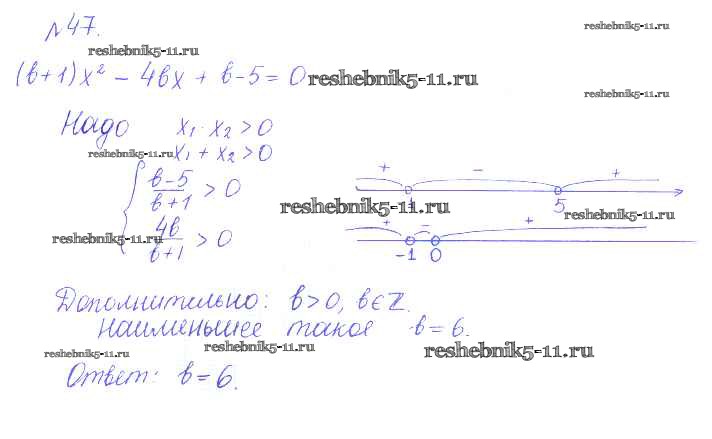 №47.
reshebnik5-11.ru
reshebnik5-11.ru
(b+1)x² - 4bx + b-5 = 0
reshebnik5-11.ru
reshebnik5-11.ru
Надо x₁·x₂ > 0
reshebnik5-11.ru
x₁ + x₂ > 0
b-5/b+1 > 0
+ - +
-1 5
reshebnik5-11.ru
reshebnik5-11.ru
4b/b+1 > 0
reshebnik5-11.ru
+ - +
-1 0
Дополнительно: b>0, b∈Z.
Наименьшее такое b=6.
reshebnik5-11.ru
reshebnik5-11.ru
reshebnik5-11.ru
Ответ: b=6.